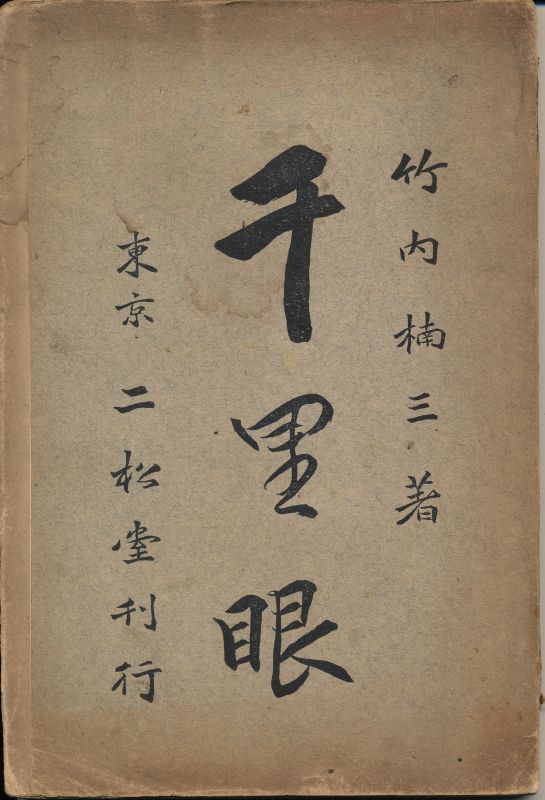 竹内楠三著
千里眼
東京 二松堂刊行